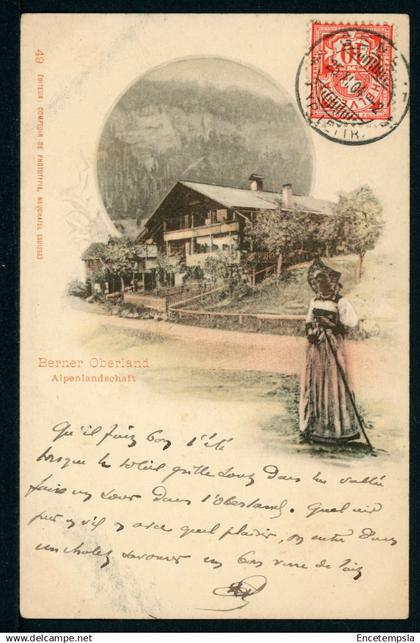 49 EDITEUR: COMPTOIR DE PHOTOTYPIE, NEUCHATEL (SUISSE)
HELVETIA
10
Berner Oberland
Alpenlandschaft
Qu'il fait bon l'été
lorsque le soleil grille tout dans la vallée
faire un tour dans l'Oberland. Quel air
pur et avec quel plaisir, on entre dans
un chalet savourer un bon verre de lait